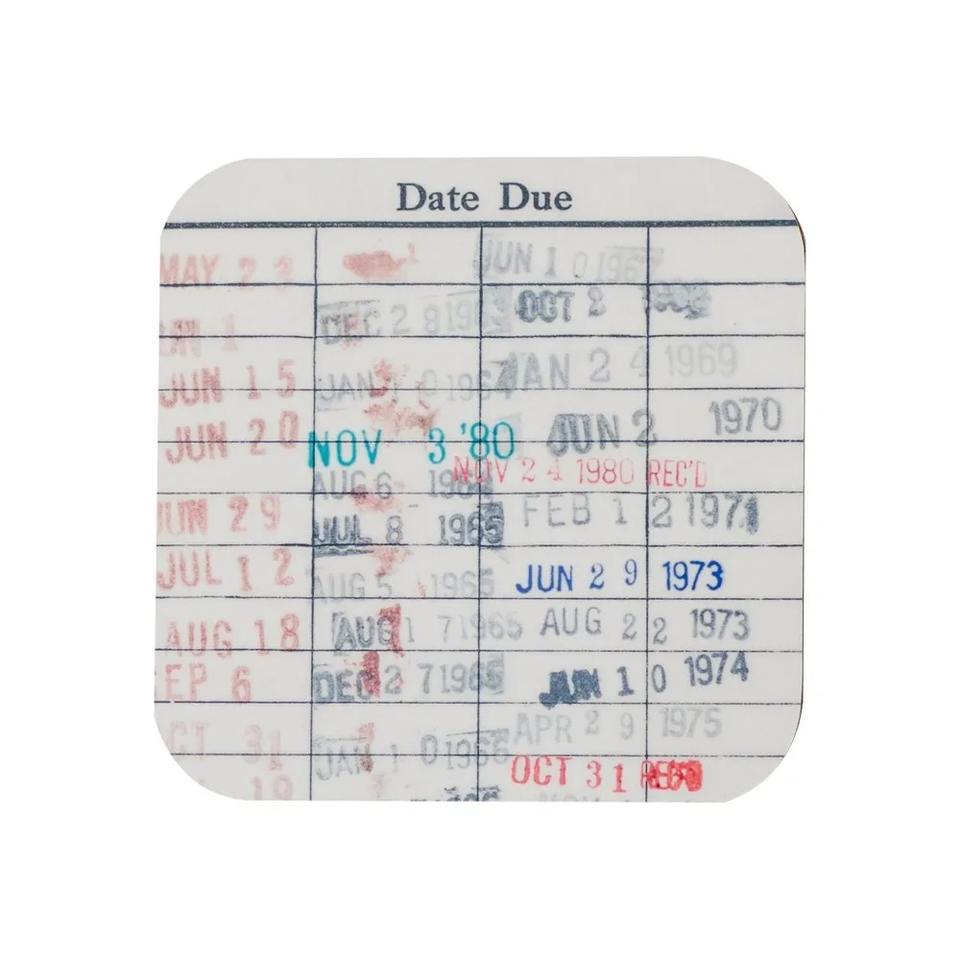 Date Due
MAY 2 3
JUN 1 5
JUN 2 0
JUN 2 9
JUL 1 2
AUG 18
EP 6
CT 31
19
DEC 2 8
JAN 1 0 1964
NOV 3 '80
AUG 6
JUL 8 1965
AUG 5 1965
AUG 1 7 1965
DEC 2 7 1965
JAN 1 0 1966
JUN 1 0 1967
OCT 2
JAN 2 4 1969
JUN 2 1970
NOV 2 4 1980 REC'D
FEB 1 2 1971
JUN 2 9 1973
AUG 2 2 1973
JUN 1 0 1974
APR 2 9 1975
OCT 3 1